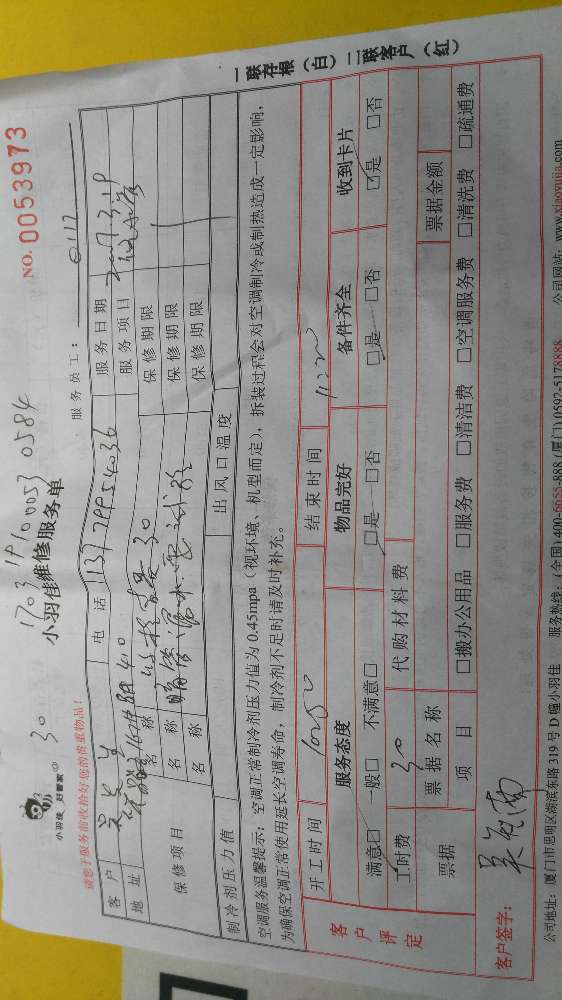 NO. 0053973
1703191000530584
30
小羽佳 好管家
小羽佳维修服务单
服务员工： 0112
请您于服务前收拾好您的贵重物品！
一联存根（白）二联客户（红）
客户
电话
服务日期 2017.3.19
地址
服务项目
保修项目
名称
30
保修期限
名称
保修期限
名称
保修期限
制冷剂压力值
出风口温度
空调服务温馨提示：空调正常制冷剂压力值为0.45mpa（视环境、机型而定），拆装过程会对空调制冷或制热造成一定影响，
为确保空调正常使用延长空调寿命，制冷剂不足时请及时补充。
客户评定
开工时间 10:50
结束时间 11:20
服务态度
物品完好
备件齐全
收到卡片
满意☑ 一般□ 不满意□
□是 □否
□是 □否
☑是 □否
工时费 30
代购材料费
票据
票据名称
票据金额
项目
□搬办公用品 □服务费 □清洁费 □空调服务费 □清洗费 □疏通费
客户签字：
公司地址：厦门市思明区湖滨东路319号D幢小羽佳 服务热线：(全国)400-6655-888 (厦门)0592-5178888 公司网站：www.xiaoyujia.com